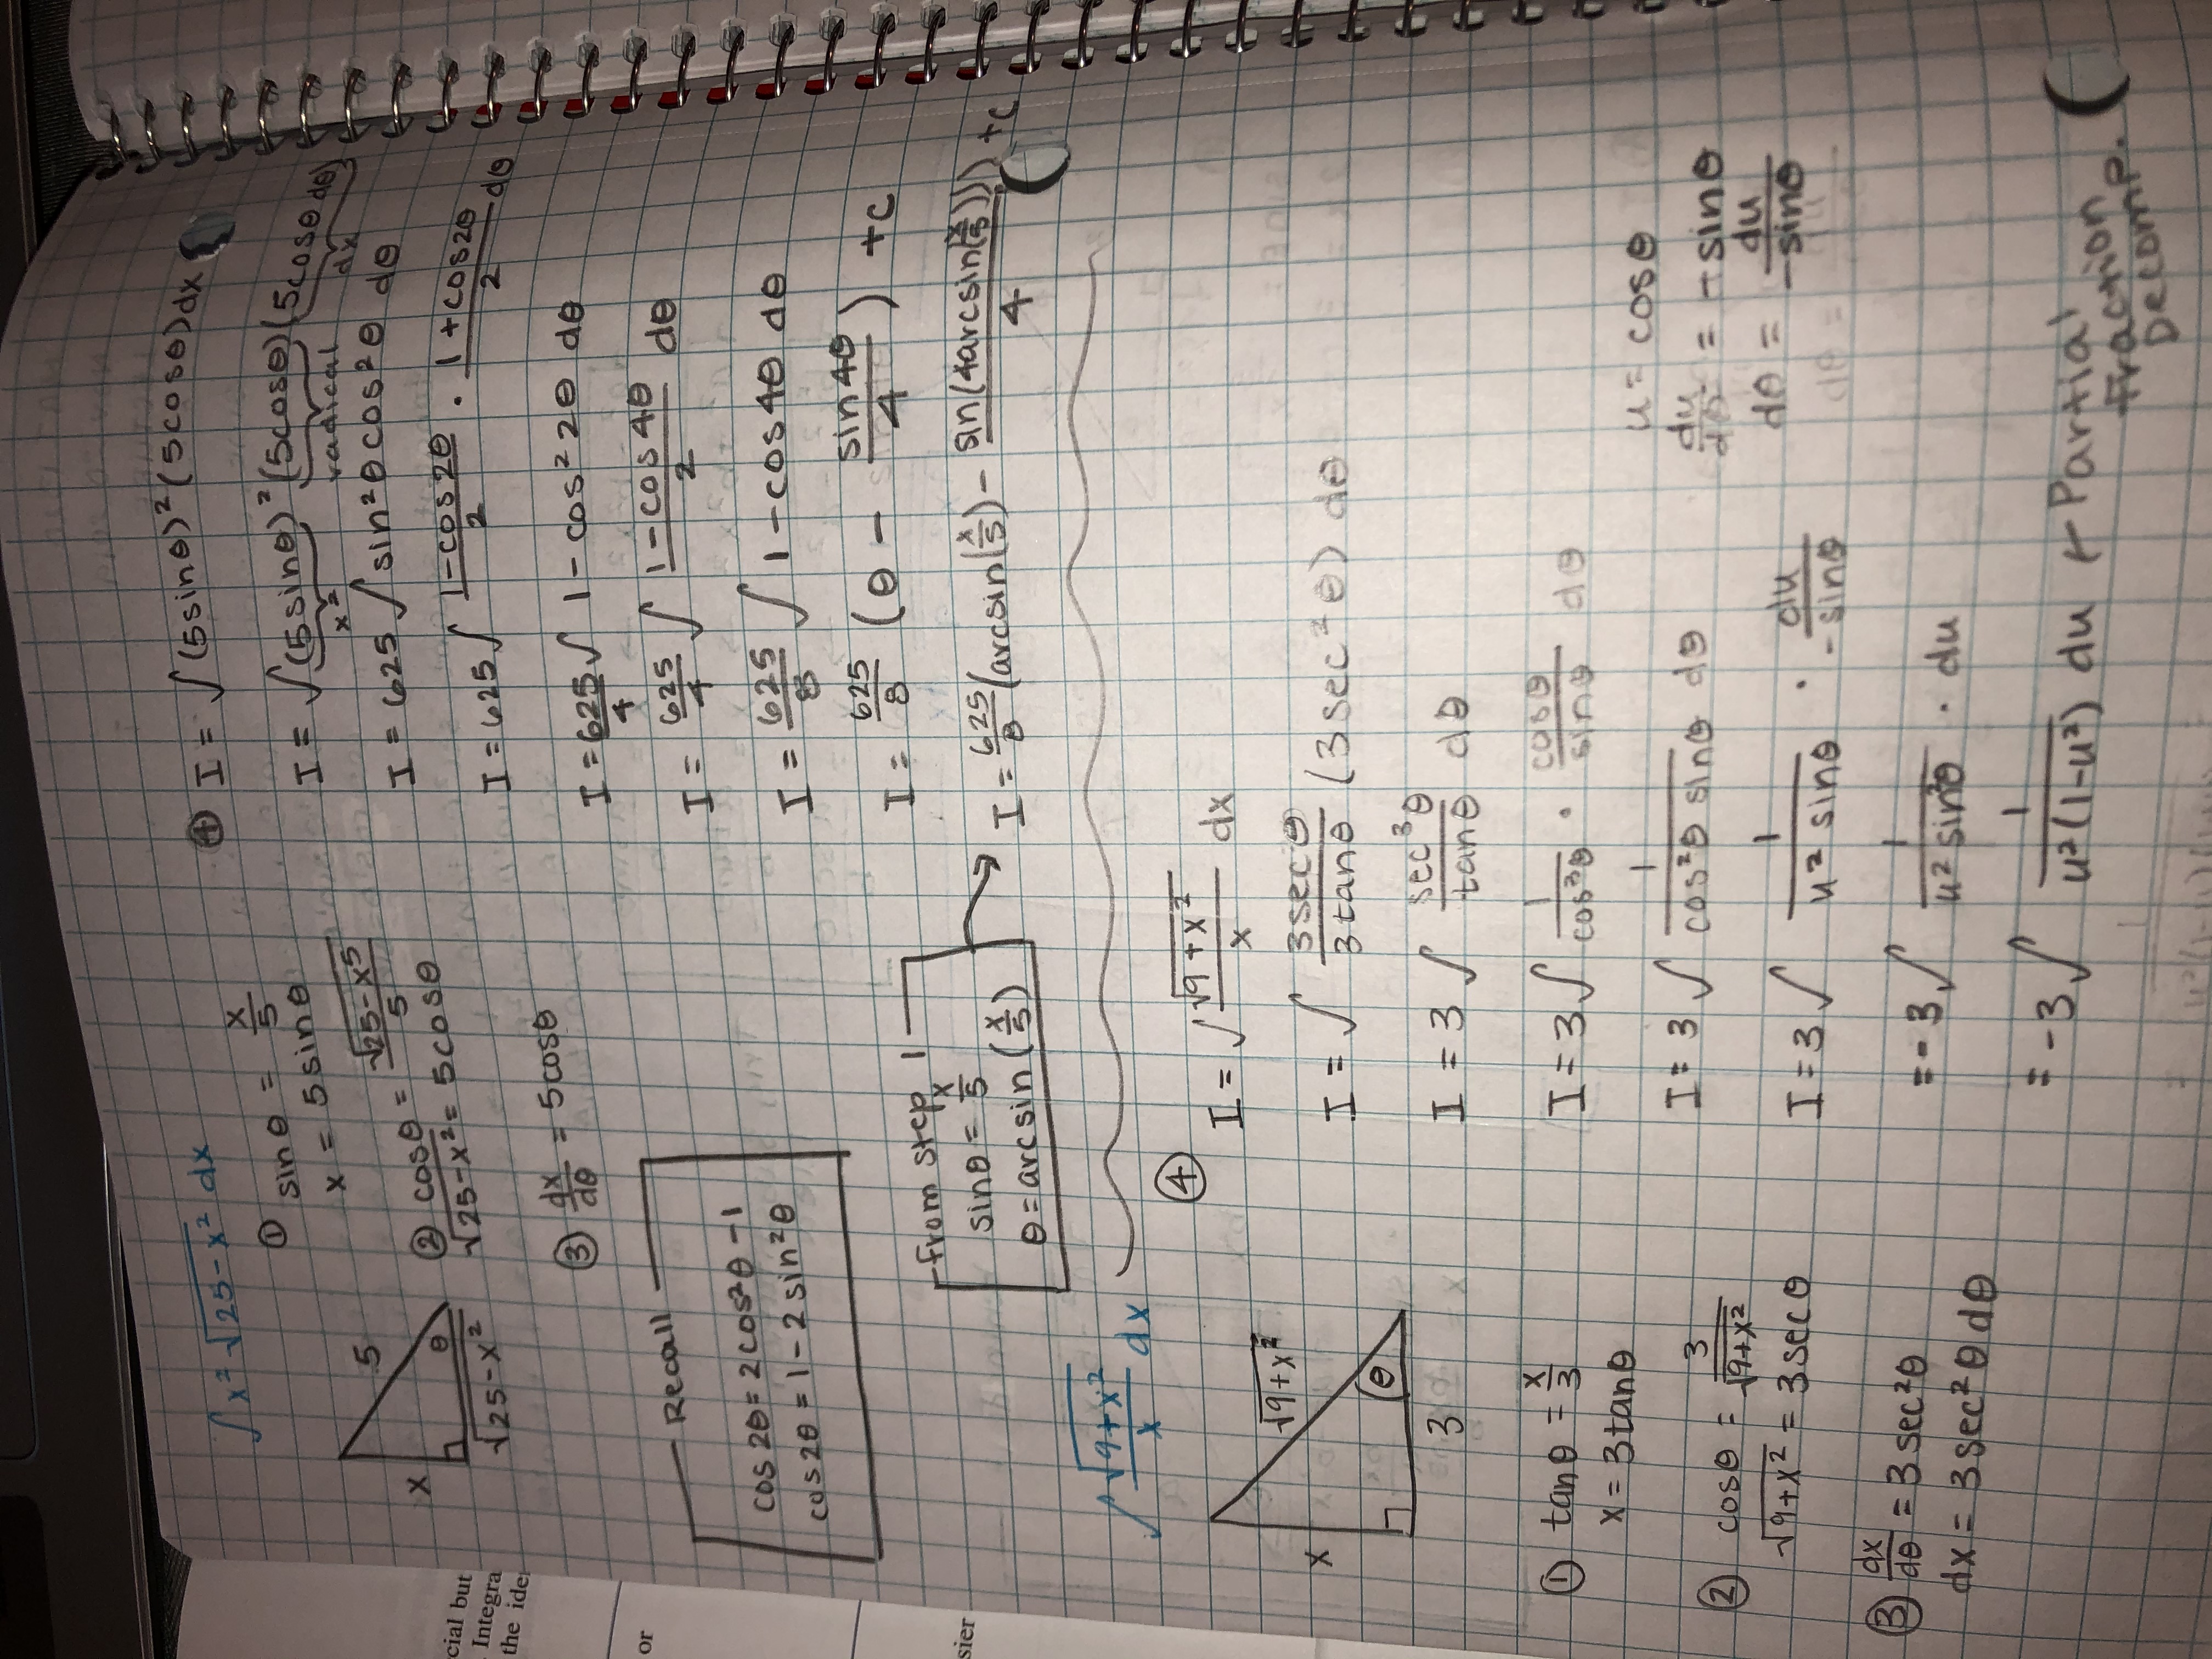 ∫ x² √(25-x²) dx
5
x
θ
√(25-x²)
① sinθ = x/5
x = 5sinθ
② cosθ = √(25-x⁵)/5
√(25-x²) = 5cosθ
③ dx/dθ = 5cosθ
Recall
cos2θ = 2cos²θ - 1
cos2θ = 1 - 2sin²θ
From step 1
sinθ = x/5
θ = arcsin(x/5)
④ I = ∫(5sinθ)²(5cosθ)dx
I = ∫(5sinθ)²(5cosθ)(5cosθ dθ)
x² radical dx
I = 625 ∫ sin²θcos²θ dθ
I = 625 ∫ (1-cos2θ)/2 · (1+cos2θ)/2 dθ
I = 625/4 ∫ 1 - cos²2θ dθ
I = 625/4 ∫ (1-cos4θ)/2 dθ
I = 625/8 ∫ 1 - cos4θ dθ
I = 625/8 (θ - sin4θ/4) + C
I = 625/8 (arcsin(x/5) - sin(4arcsin(x/5))/4) + C
∫ √(9+x²)/x dx
√(9+x²)
x
θ
3
① tanθ = x/3
x = 3tanθ
② cosθ = 3/√(9+x²)
√(9+x²) = 3secθ
③ dx/dθ = 3sec²θ
dx = 3sec²θdθ
④ I = ∫ √(9+x²)/x dx
I = ∫ 3secθ/3tanθ (3sec²θ) dθ
I = 3 ∫ sec³θ/tanθ dθ
I = 3 ∫ 1/cos³θ · cosθ/sinθ dθ
I = 3 ∫ 1/(cos²θ sinθ) dθ
u = cosθ
du/dθ = -sinθ
dθ = du/-sinθ
dθ =
I = 3 ∫ 1/(u² sinθ) · du/-sinθ
= -3 ∫ 1/(u² sin²θ) · du
= -3 ∫ 1/(u²(1-u²)) du ← Partial
Fraction
Decomp.
cial but
Integra
the ide
or
sier